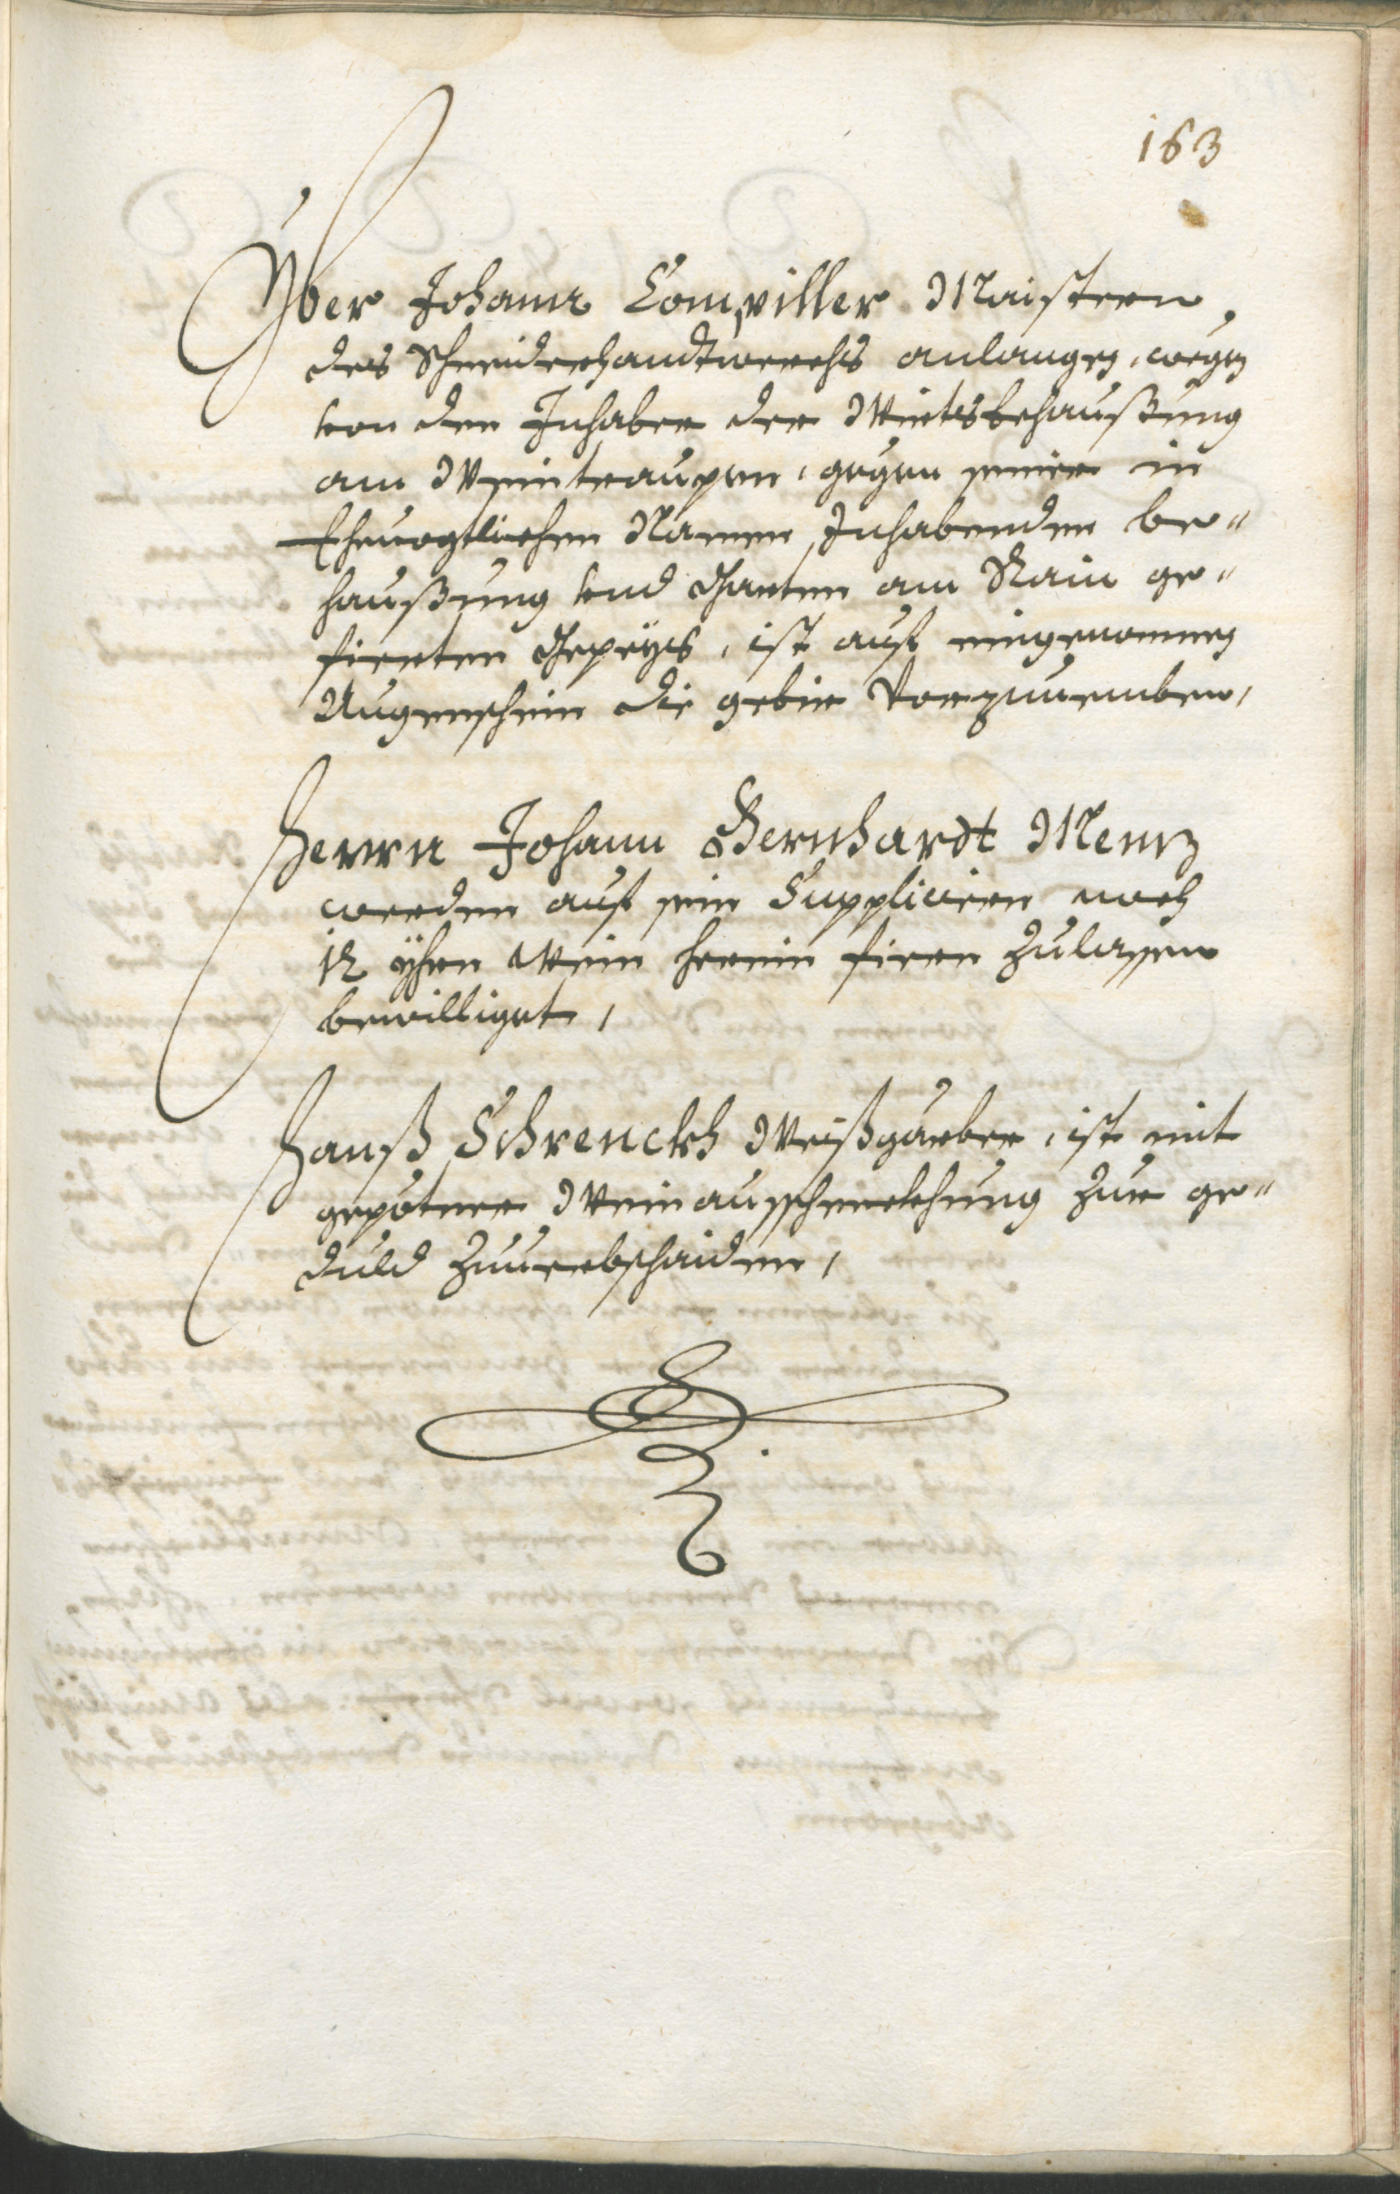 163
Yber Johann Compiller Maistern
des Schneiderhandtwerchs anlangen, wegen
von den Inhaber der Wirtsbehaußung
am Weintraupen, gegen seiner in
Ehevogtlichen Namen Inhabenden be¬
haußung vnd Garten am Rain ge¬
fierten Gepeys, ist auf eingenomnen
Augenschein die gebir Vorzunemben,
Herrn Johann Bernhardt Menz
werden auf sein Suppliciern noch
12 yhrn Wein herein fieren Zulassen
bewilliget,
Hanß Schrenckh Weißgärber, ist mit
gepotner Weinausschenckhung Zur ge¬
duld Zuuerbschaiden,